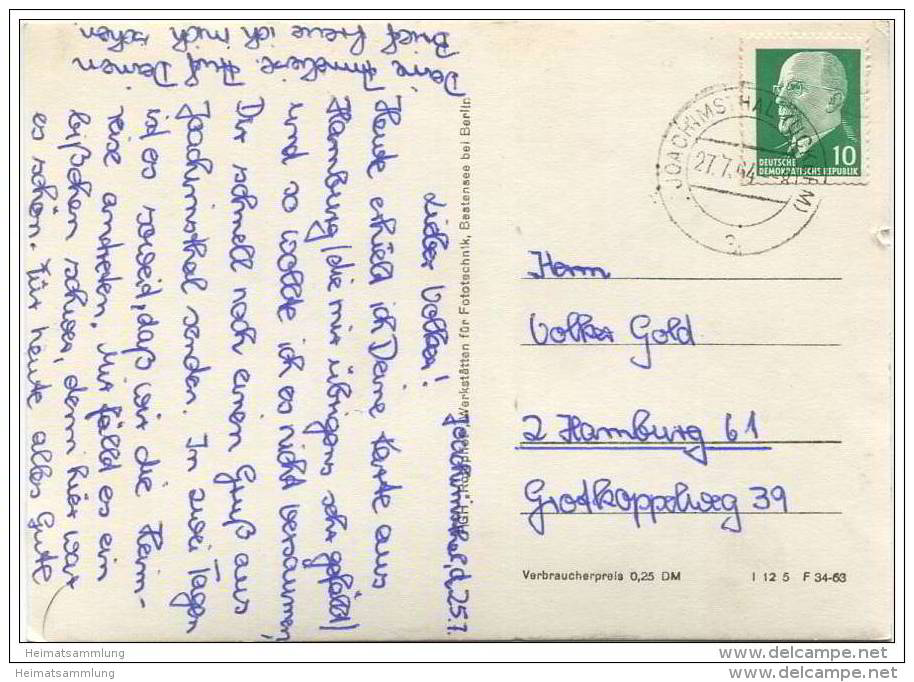 Joachimsthal, d. 25.7.
Lieber Volker!
Heute erhielt ich Deine Karte aus
Hamburg (die mir übrigens sehr gefällt)
und so wollte ich es nicht versäumen,
Dir schnell noch einen Gruß aus
Joachimsthal senden. In zwei Tagen
ist es soweit, daß wir die Heim-
reise antreten. Mir fällt es ein
bißchen schwer, denn hier war
es schön. Für heute alles Gute
Deine Anneliese. Auf Deinen
Brief freue ich mich schon
HGH „ Werkstätten für Fototechnik, Bestensee bei Berlin
JOACHIMSTHAL
27.7.64
a
10
DEUTSCHE
DEMOKRATISCHE REPUBLIK
Herrn
Volker Gold
2 Hamburg 61
Grotkoppelweg 39
Verbraucherpreis 0,25 DM
I 12 5 F 34-63
Heimatsammlung
www.delcampe.net
Heimatsammlung
www.delcampe.net